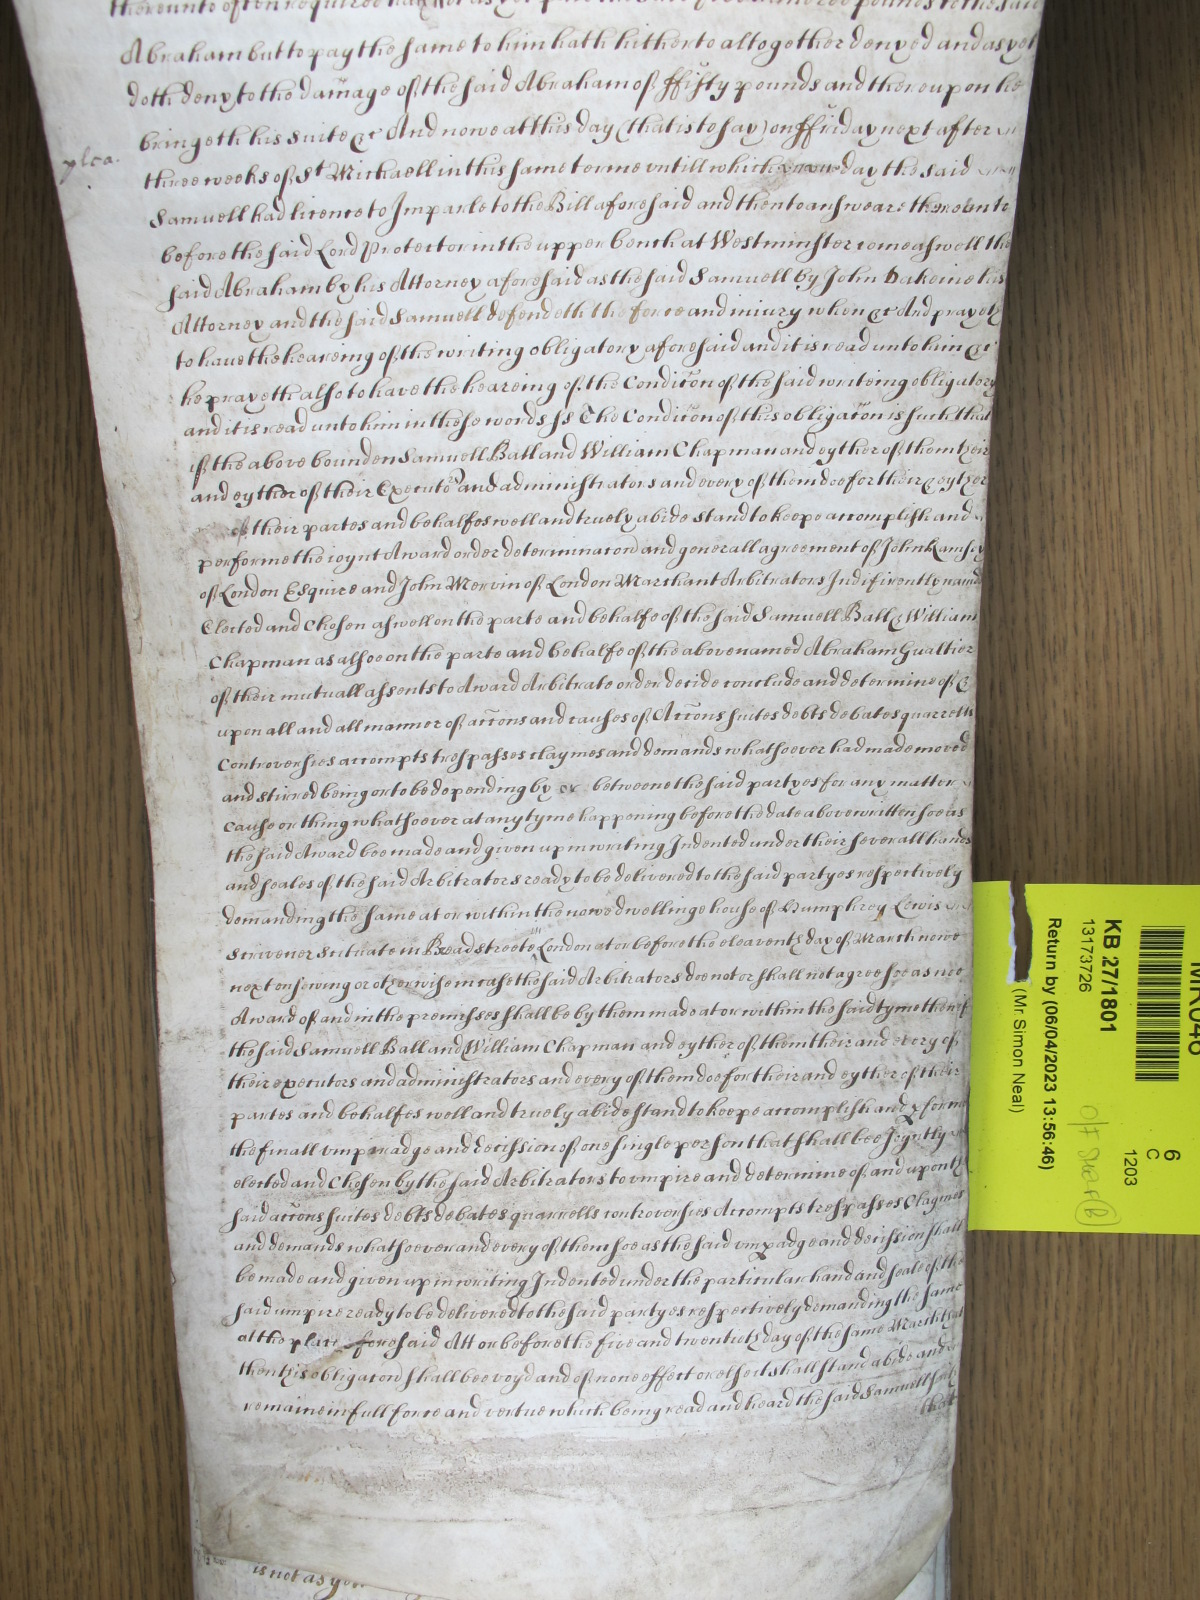 thereunto often required hath not as yet paid the said five hundred pounds to the said
Abraham but to pay the same to him hath hitherto altogether denyed and as yet
doth deny to the damage of the said Abraham of ffifty pounds and thereupon he
bringeth his suite &c And nowe at this day (that is to say) on ffriday next after
plea.
three weeks of St Michaell in this same terme untill which day the said
Samuell had licence to Imparle to the Bill aforesaid and then to answeare thereunto
before the said Lord Protector in the upper bench at Westminster come aswell the
said Abraham by his Attorney aforesaid as the said Samuell by John his
Attorney and the said Samuell defendeth the force and iniury when &c And prayeth
to have the heareing of the writing obligatory aforesaid and it is read unto him &c
he prayeth also to have the heareing of the Condicon of the said writeing obligatory
and it is read unto him in these words ss The Condicon of this obligacon is such that
if the above bounden Samuell Ball and William Chapman and eyther of them their
and eyther of their Executors and administrators and every of them doe for their & eyther
of their partes and behalfes well and truely abide stand to keepe accomplish and
performe the ioynt Award order determinacon and generall agreement of John Ramsey
of London Esquire and John Mervin of London Marchant Arbitrators Indifirently named
Elected and Chosen aswell on the parte and behalfe of the said Samuell Ball & William
Chapman as alsoe on the parte and behalfe of the above named Abraham Gualtier
of their mutuall assents to Award Arbitrate order decide conclude and determine of &
upon all and all manner of accons and causes of Accons suites debts debates quarrells
Controversies accompts trespasses claymes and demands whatsoever had made moved
and stirred being or to be depending by or betweene the said partyes for any matter
Cause or thing whatsoever at any tyme happening before the date above written soe as
the said Award bee made and given up in writing Indented under their severall hands
and seales of the said Arbitrators ready to be delivered to the said partyes respectively
demanding the same at or within the nowe dwellinge house of Humphrey Lewis
scrivener scituate in Breadstreete London at or before the eleaventh day of March nowe
next ensewing or otherwise in case the said Arbitrators doe not or shall not agree soe as noe
Award of and in the premisses shall be by them made at or within the said tyme then if
the said Samuell Ball and William Chapman and eyther of them their and every of
their executors and administrators and every of them doe for their and eyther of their
partes and behalfes well and truely abide stand to keepe accomplish and pforme
the finall umpiradge and decission of one single person that shall bee Joyntly
elected and Chosen by the said Arbitrators to umpire and determine of and upon the
said accons suites debts debates quarrells controversies Accompts trespasses Claymes
and demands whatsoever and every of them soe as the said umpadge and decission shall
be made and given up in writing Indented under the particular hand and seale of the
said umpire ready to be delivered to the said partyes respectively demanding the same
at the place aforesaid Att or before the five and twentieth day of the same March that
then this obligacon shall bee voyd and of none effect or els it shall stand abide and
remaine in full force and vertue which being read and heard the said Samuell saith
that
is not as you
MR048
6
C
1203
KB 27/1801
13173726
Return by (06/04/2023 13:56:46)
(Mr Simon Neal)